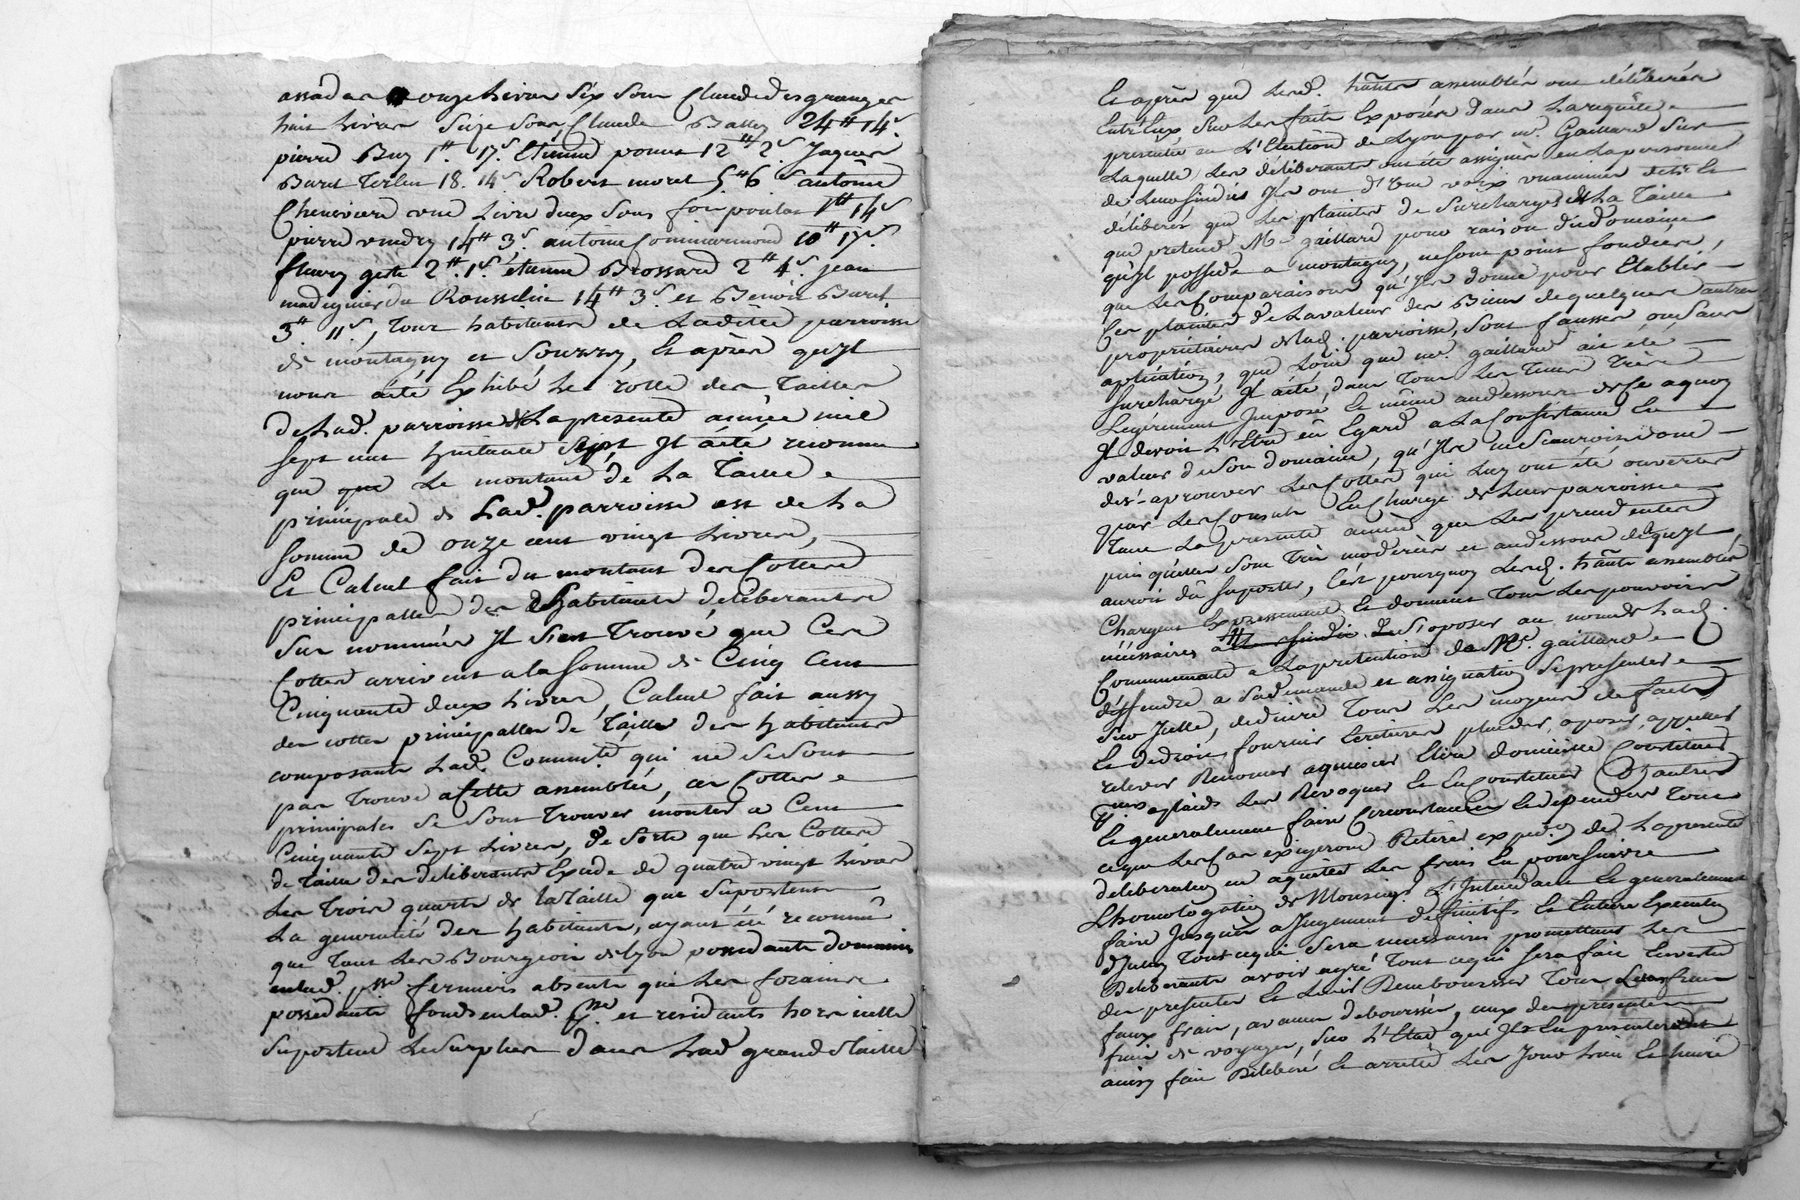 onze livres six sous Claude desgranges
huit livres seize sous Claude Balley 24# 14s
pierre Buy 1# 17s Etienne ponet 12# 2s Jaques
Buret 18. 14s Robert moret 5# 6s antoine
une Livre deux sous 1# 14s
pierre vindry 14# 3s antoine Commarmond 10# 17s
fleury geste 2# 1s etienne Brossard 2# 4s jean
Rousselin 14# 3s et Benoit Buret
3# 11s, Tous habitants de Laditte parroisse
de montagny et Sourzy, Et après quyl
nous àété Exhibé Le rolle des Tailles
de Lad. parroisse de La presente année mil
sept cent huitante sept Jl àété reconnu
que que Le montant de La Taille
principale de Lad. parroisse est de La
somme de onze cent vingt Livres,
Et Calcul fait du montant des Cottes
principalles des habitants deliberants
sur nommés Jl s'est Trouvé que Ces
Cottes arrivent a la somme de Cinq Cent
Cinquante deux Livres, Calcul fait aussy
des cottes principalles de Taille des habitants
composants Lad. Commté qui ne se sont
pas Trouvé a Cette assemblée, ces Cottes
principales se sont Trouver monter a Cent
Cinquante sept Livres, de sorte que Les Cottes
de Taille des deliberants Excede de quatre vingt Livres
Les Trois quarts de la Taille que suportent
La generalité des habitants, ayant été reconnu
que Tous Les Bourgeois de Lyon possedants domaines
en lad. psse fermiers absents que Les forains
possedants fonds en lad. psse et residants hors icelle
suportent Le surplus dans Lad. grande Taille
Et après que Lesd. habants assemblés ont délibérés
Entr'Eux sur Les faits Exposés dans La requête
presentée en L'Election de Lyon par mr. Gaillard sur
Laquelle Les délibérants ont été assignés en La personne
de Leur sindic Jls ont d'une voix unanime dit et
délibérés que Les plaintes de surcharges de La Taille
que pretend Mr gaillard pour raison du domaine
qu'Jl possede a montagny, ne sont point fondées,
que Les Comparaisons qu'Jl donne pour Etablir
Ces plaintes de La valeur des Biens de quelques autres
propriétaires de lad. parroisse, sont fausses ou sans
aplication, que Loin que mr. gaillard ait été
surchargé Jl àété dans Tous Les Tems Très
Legérement Jmposé et même audessous de Ce aquoy
Jl devoit L'Etre eû Egard a La Consistance et
valeur de son domaine, qu'Jls ne sauroient donc
des-aprouver Les Cottes qui Luy ont été ouvertes
par Les Consuls En Charge de Leur parroisse
dans La presente année que Les precedentes
puis qu'elles sont Très moderées et audessous de ce quyl
auroit dû suporter, C'est pourquoy Lesd. habants assemblés
Chargent Expressement Et donnent Tous Les pouvoirs
nécéssaires à sindic de s'oposer au nom de Lad.
Communauté a La pretention de Mr. gaillard
déffendre a sa demande et assignation se presenter
sur Jcelle, deduire Tous Les moyens de faits
Et de droit, fournir Ecritures plaider, oposer, appeller
relever Renoncer aquiesser Elire domicille Constituer
Les Revoquer Et En Constituer D'autres
Et generalement faire Circonstances Et dependances Tout
ce que Les Cas exigeront Retirer expedon de La presente
deliberation en aquiter Les frais En poursuivre
L'homologation de Monseigr. L'Jntendant Et generalement
faire Jusques a Jugement définitif Et Entiere Execution
d'Jcelluy Tout ce qui sera necessaire promettant Les
Deliberants avoir agré Tout ce qui sera fait En vertu
des presentes Et Lui Rembourser Tous Les frais
faux frais, avances deboursés, ceux des presentes
frais de voyages, sur L'Etat que Jl En presentera
ainsy fait Deliberé Et arretté Les Jour Lieu Et heure